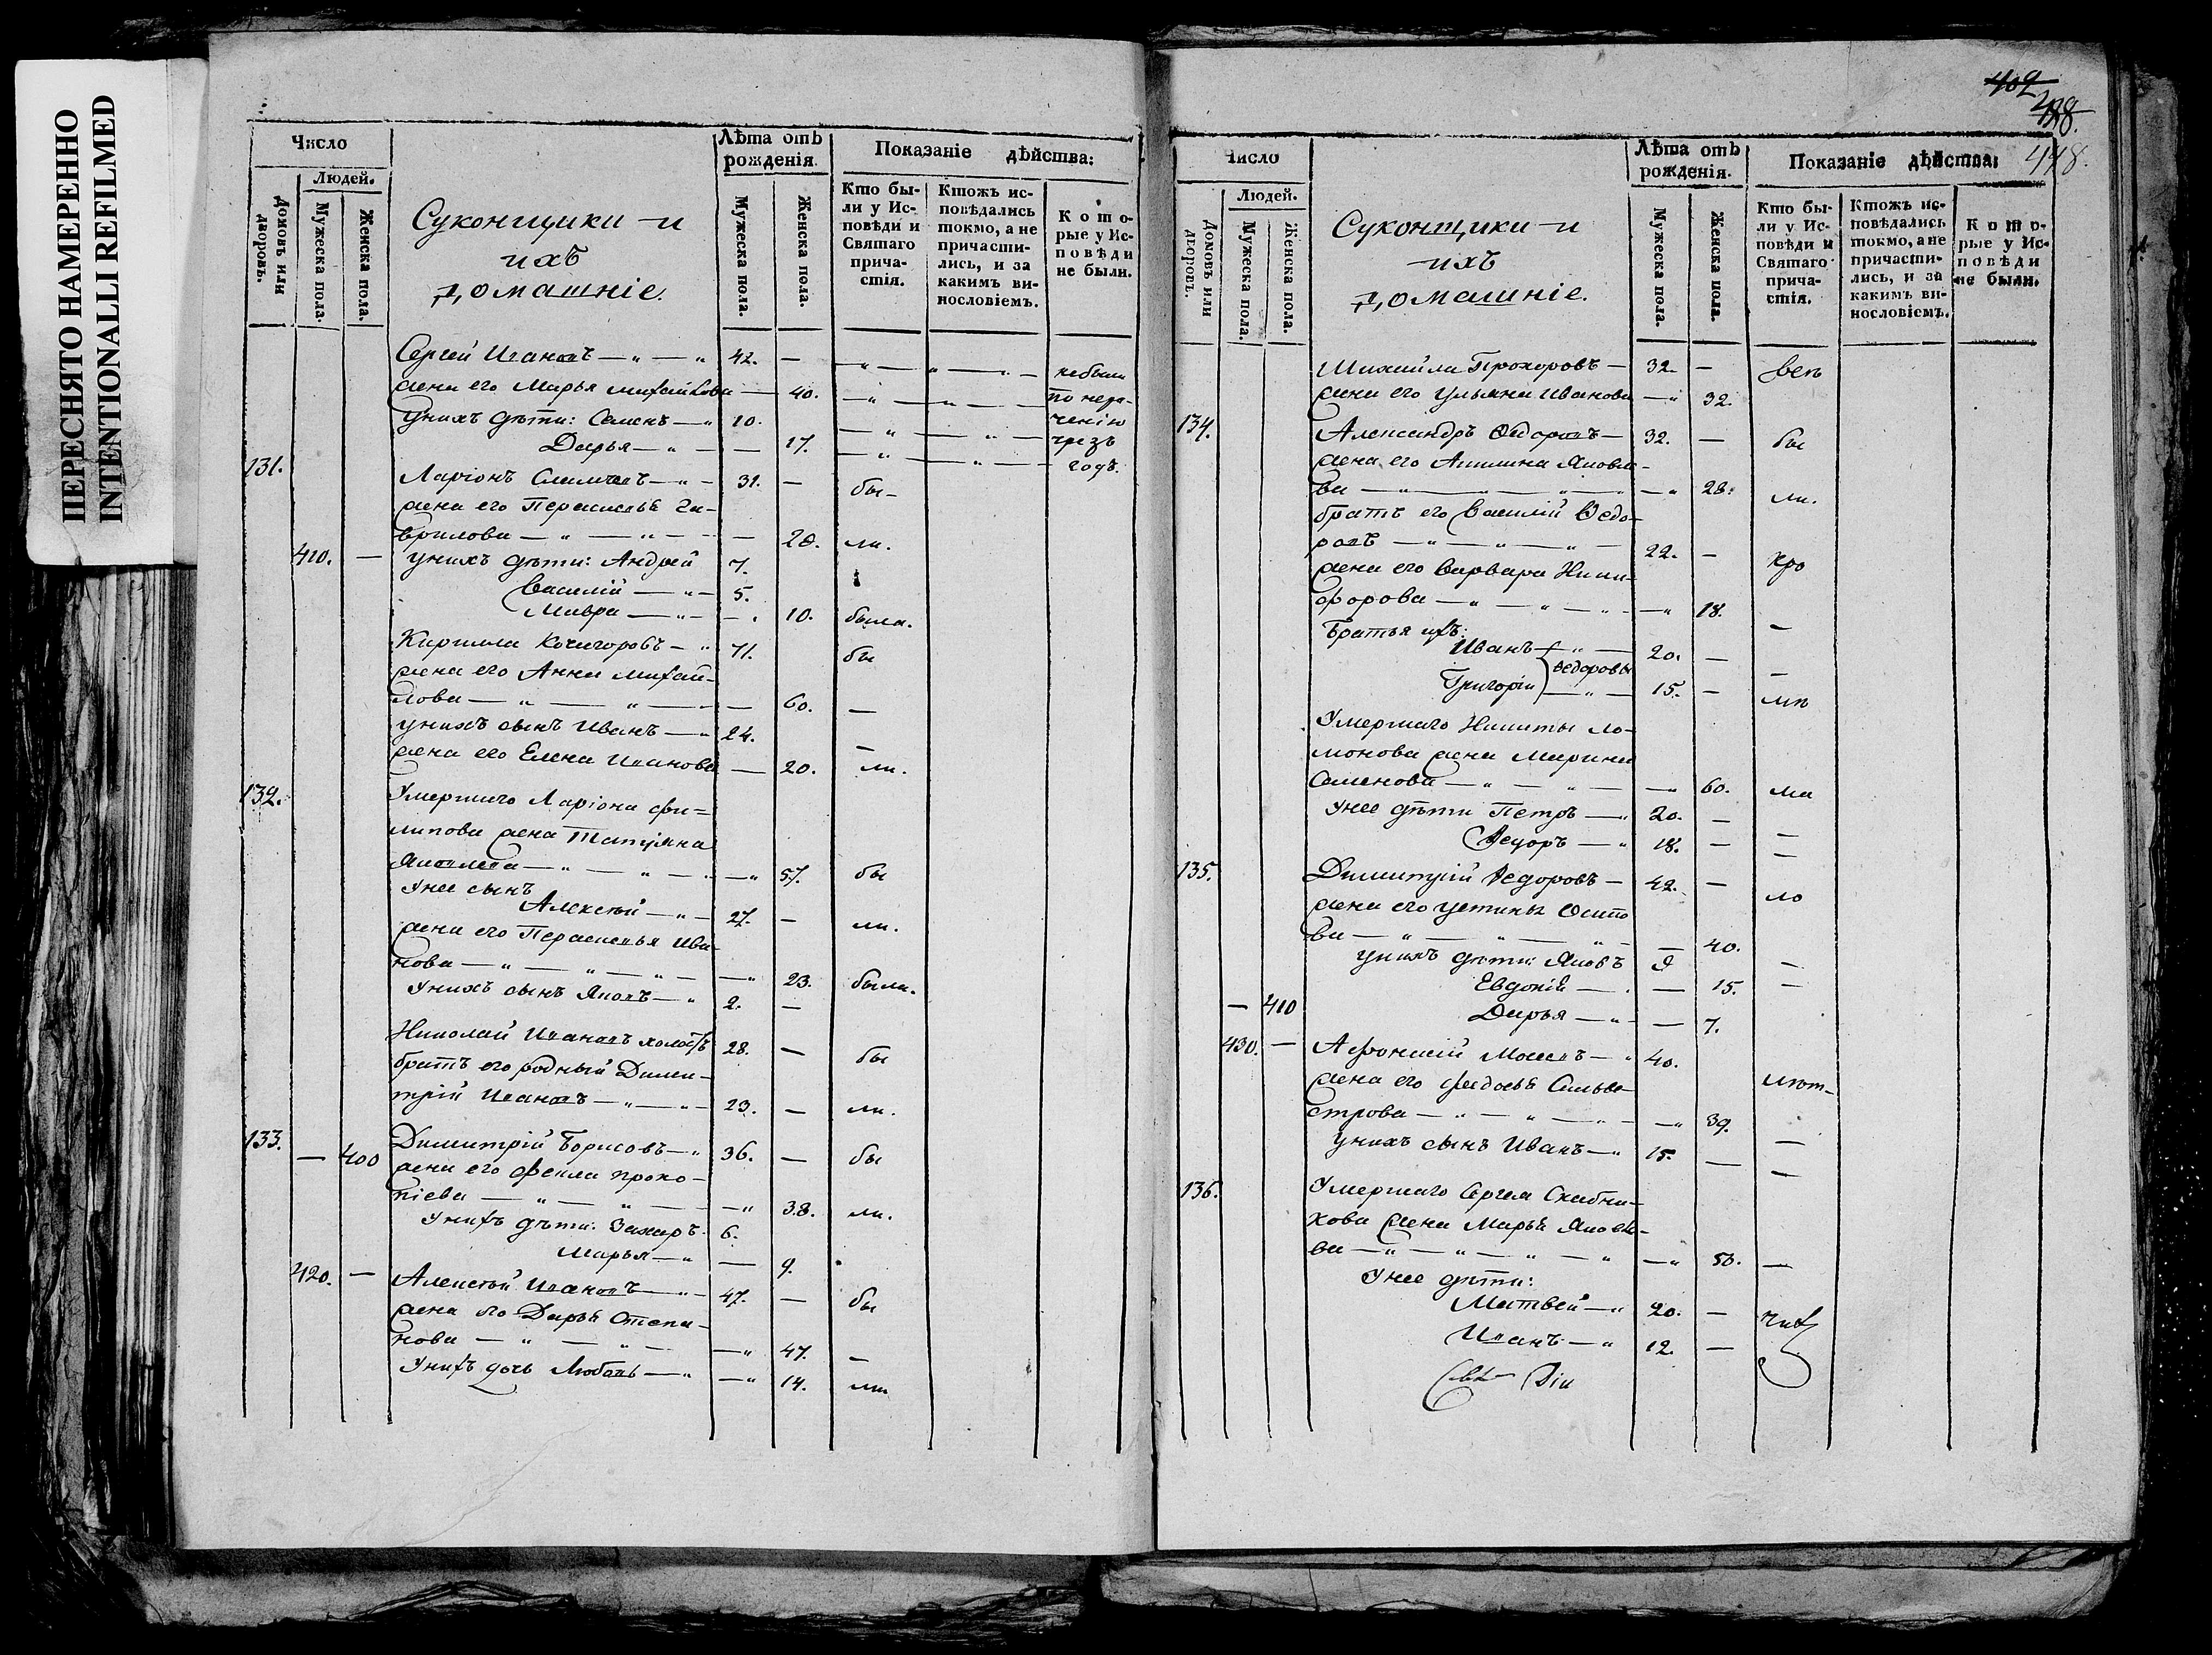 ПЕРЕСНЯТО НАМЕРЕННО
INTENTIONALLI REFILMED
Число
Людей.
Домовъ или дворовъ.
Мужеска пола.
Женска пола.
Суконщики и
ихъ
домашніе.
Лѣта отъ рожденія.
Мужеска пола.
Женска пола.
Показаніе дѣйства:
Кто были у Исповѣди и Святаго причастія.
Ктожъ исповѣдались токмо, а не причастились, и за какимъ винословіемъ.
Которые у Исповѣди не были.
Сергей Ивановъ — „ — „ 42. — небыли
жена его Марья михайлова — 40. по нера-
унихъ дѣти: Семенъ — „ 10. ченію
Дарья — „ — — 17. чрезъ
годъ.
131. Ларіонъ — „ — 31. — бы-
жена его Перасковья Га-
врилова — „ — „ — — 28. ли.
410. — унихъ дѣти: Андрей 7.
Василій — „ — 5.
Мавра — „ — — „ 10. была.
Кирилла — „ 71. бы
жена его Анна михай-
лова — „ — „ — — 60. —
унихъ сынъ Иванъ — „ 24. —
жена его Елена Иванова — 20. ли.
132. Умершаго Ларіона фи-
липова жена Татіяна
Яковлева — „ — „ — „ — „ 57. бы
Унее сынъ
Алексѣй — „ — 27. — ли.
жена его Перасковья Ива-
нова — „ — „ — „ — — „ 23. была.
Унихъ сынъ Яковъ — „ 2. —
Николай Ивановъ холостъ 28. — бы
братъ его родный Дими-
трій Ивановъ — „ — „ — 23. — ли.
133. — 400 Димитрій Борисовъ — „ 36. — бы
жена его Фекла проко-
піева — „ — „ — — „ 38. ли.
Унихъ дѣти: Захаръ 6.
Марья — „ — 9.
420. — Алексѣй Ивановъ — „ — 47. — бы
жена его Дарья Степа-
нова — „ — „ — — „ 47. —
Унихъ дочь Любовь — „ — „ 14. ли
409
448.
Число
Людей.
Домовъ или дворовъ.
Мужеска пола.
Женска пола.
Суконщики и
ихъ
домашніе.
Лѣта отъ рожденія.
Мужеска пола.
Женска пола.
Показаніе дѣйства:
Кто были у Исповѣди и Святаго причастія.
Ктожъ исповѣдались токмо, а не причастились, и за какимъ винословіемъ.
Которые у Исповѣди не были.
Михайла Прохоровъ — 32. —
жена его Ульяна Иванова — „ 32.
134. Александръ Ѳедоровъ — 32. — бы
жена его Акилина Яковле-
ва — „ — „ — „ — — „ 28. ли.
братъ его Василій Ѳедо-
ровъ — „ — „ — „ — 22. —
жена его Варвара Ники-
форова — „ — „ — „ — — „ 18. —
Братья ихъ:
Иванъ — „ — 20. — —
Ѳедоровы
Григорій — „ — 15. —
Умершаго Никиты
жена Марина
Семенова — „ — „ — — „ 60.
Унее дѣти Петръ — „ 20. — —
Ѳедоръ — „ 18. — —
135. Димитрій Ѳедоровъ — 42. —
жена его Устинья Осипо
ва — „ — „ — „ — — 40.
унихъ дѣти: Яковъ —
Евдокія — . — 15. —
— 410 Дарья — „ — — 7.
430. — Афонасій — „ 40.
жена его федосья Сильве-
строва — „ — „ — „ — — „ 39. —
унихъ сынъ Иванъ — „ 15. — —
136. Умершаго Сергея
жена Марья Яковле-
ва — „ — „ — „ — „ — „ 50. —
Унее дѣти:
Матвей — „ 20. —
Иванъ — „ 12. —